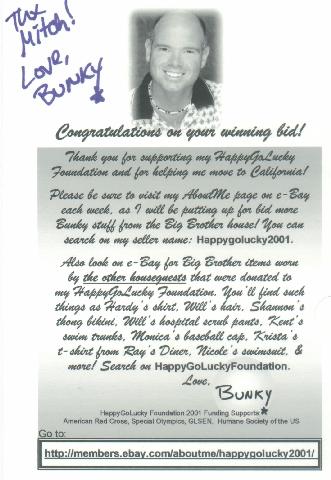 Thx
Mitch!
Love,
BUNKY
Congratulations on your winning bid!
Thank you for supporting my HappyGoLucky
Foundation and for helping me move to California!
Please be sure to visit my AboutMe page on e-Bay
each week, as I will be putting up for bid more
Bunky stuff from the Big Brother house! You can
search on my seller name: Happygolucky2001.
Also look on e-Bay for Big Brother items worn
by the other houseguests that were donated to
my HappyGoLucky Foundation. You'll find such
things as Hardy's shirt, Will's hair, Shannon's
thong bikini, Will's hospital scrub pants, Kent's
swim trunks, Monica's baseball cap, Krista's
t-shirt from Ray's Diner, Nicole's swimsuit, &
more! Search on HappyGoLuckyFoundation.
Love,
BUNKY
HappyGoLucky Foundation 2001 Funding Supports
American Red Cross, Special Olympics, GLSEN, Humane Society of the US
Go to:
http://members.ebay.com/aboutme/happygolucky2001/